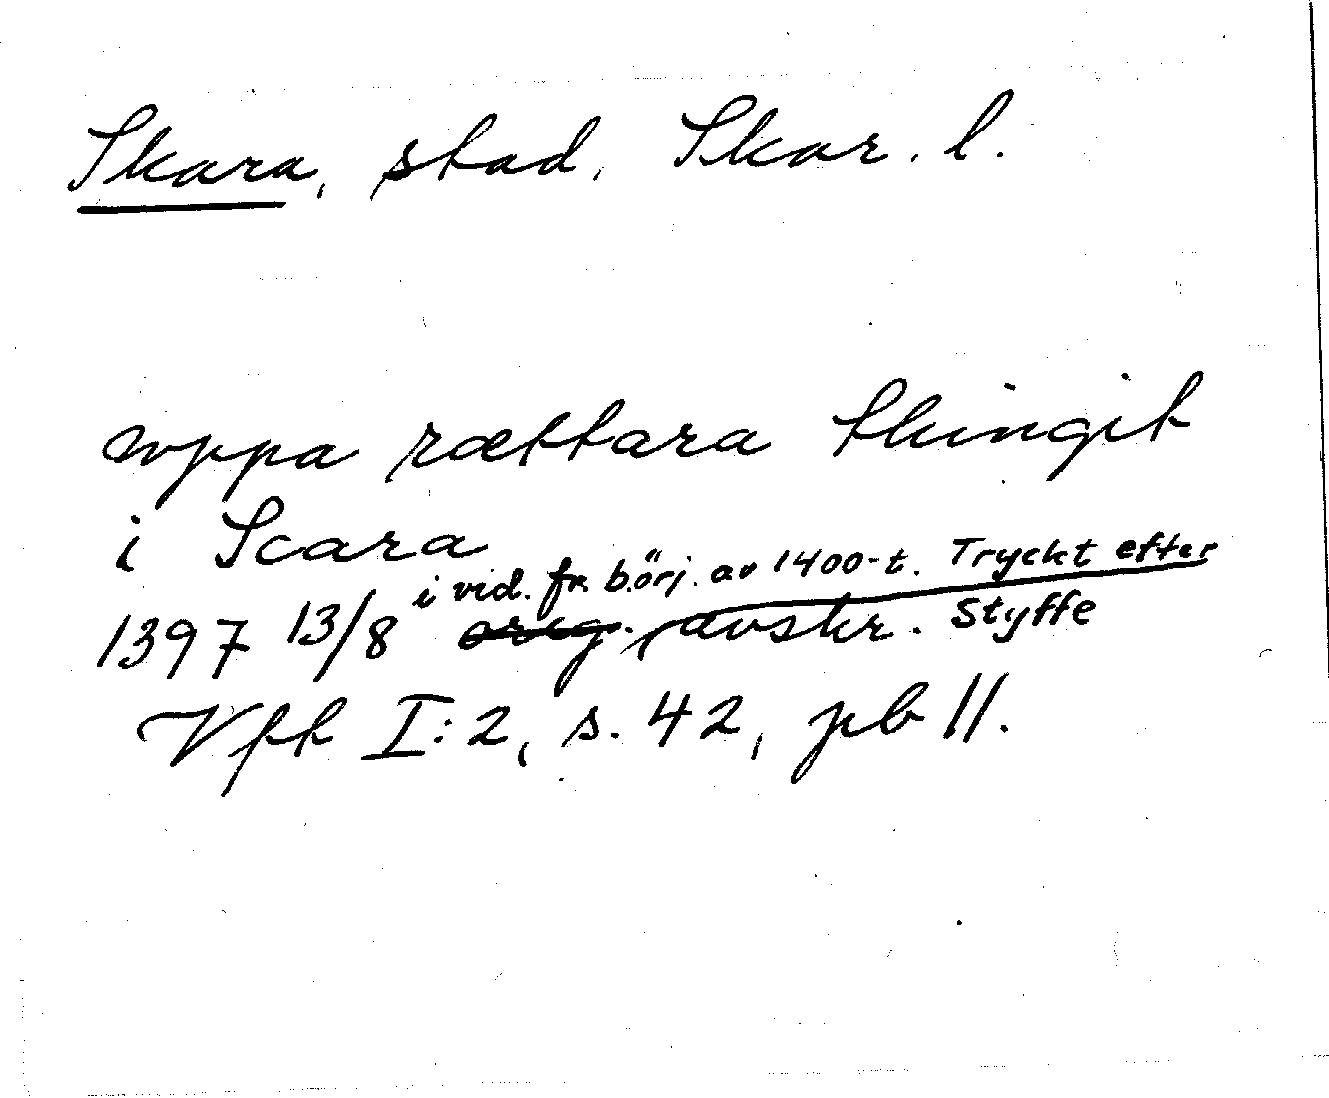 Skara, stad, Skar. l.
wppa rættara thingit
i Scara
i vid. fr. börj. av 1400-t. Tryckt efter
1397 13/8 orig. avskr. Styffe
Vfh I:2, s. 42, pb 11.